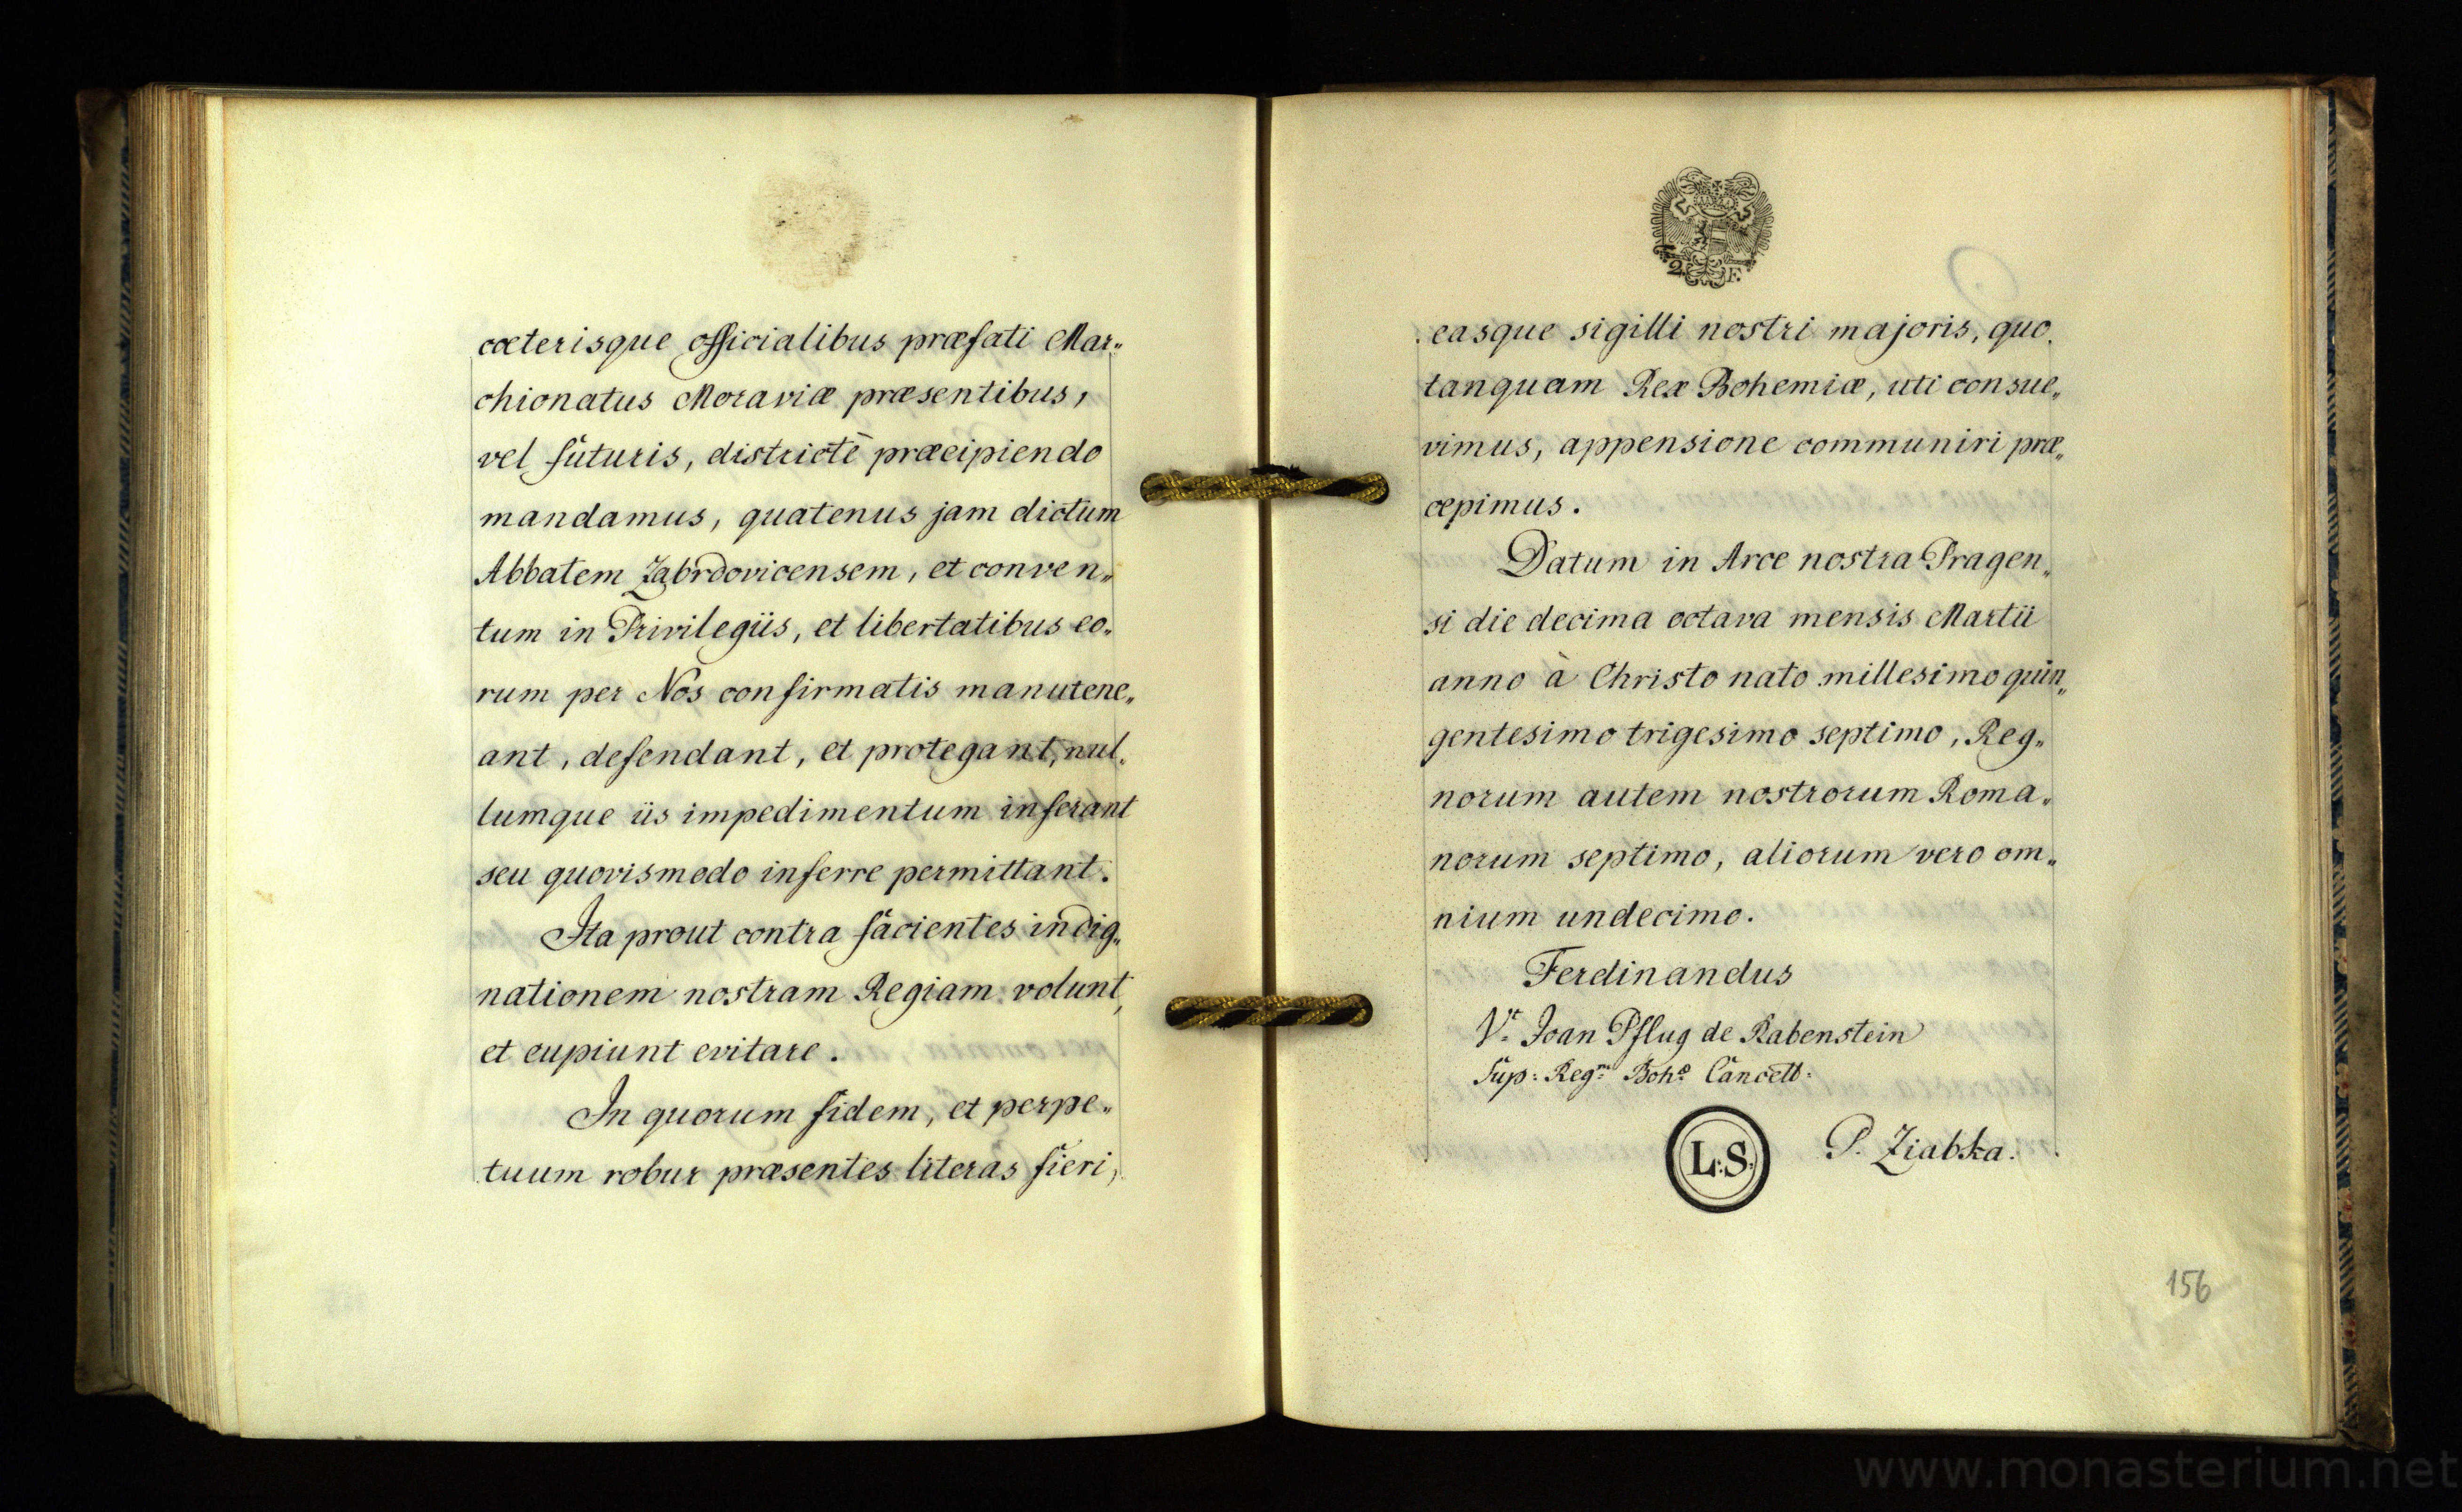 cæterisque officialibus præfati Mar„
chionatus Moraviæ præsentibus,
vel futuris, districtè præcipiendo
mandamus, quatenus jam dictum
Abbatem Zabrdovicensem, et conven„
tum in Privilegiis, et libertatibus eo„
rum per Nos confirmatis manutene„
ant, defendant, et protegant, nul„
lumque iis impedimentum inferant
seu quovismodo inferre permittant.
Ita prout contra facientes indig„
nationem nostram Regiam volunt,
et cupiunt evitare.
In quorum fidem, et perpe„
tuum robur præsentes literas fieri,
easque sigilli nostri majoris, quo
tanquam Rex Bohemiæ, uti consue„
vimus, appensione communiri præ„
cepimus.
Datum in Arce nostra Pragen„
si die decima octava mensis Martii
anno à Christo nato millesimo quin„
gentesimo trigesimo septimo, Reg„
norum autem nostrorum Roma„
norum septimo, aliorum vero om„
nium undecimo.
Ferdinandus
Vt. Joan Pflug de Rabenstein
Sup: Regni Bohe Cancell:
L.S. P. Ziabka.
156
www.monasterium.net